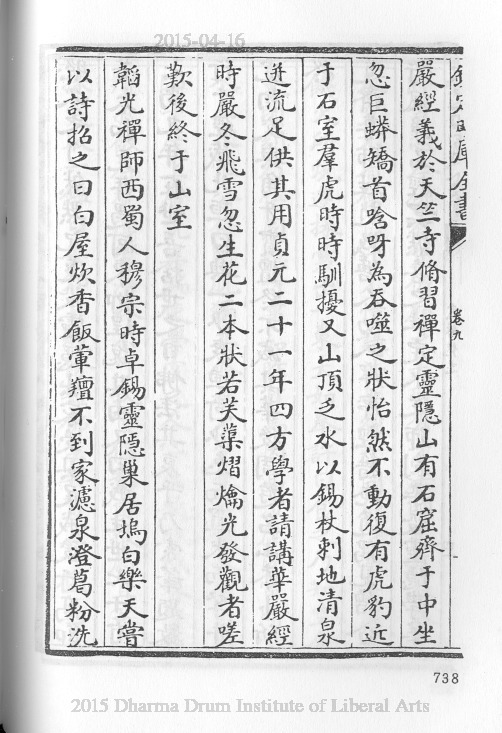 2015-04-16
欽定四庫全書
卷九
嚴經義於天竺寺脩習禪定靈隱山有石窟齊于中坐
忽巨蟒矯首唅呀為吞噬之狀怡然不動復有虎豹近
于石室羣虎時時馴擾又山頂乏水以錫杖刺地清泉
迸流足供其用貞元二十一年四方學者請講華嚴經
時嚴冬飛雪忽生花二本狀若芙蕖熠爚光發觀者嗟
歎後終于山室
韜光禪師西蜀人穆宗時卓錫靈隱巢居塢白樂天嘗
以詩招之曰白屋炊香飯葷羶不到家濾泉澄葛粉洗
738
2015 Dharma Drum Institute of Liberal Arts